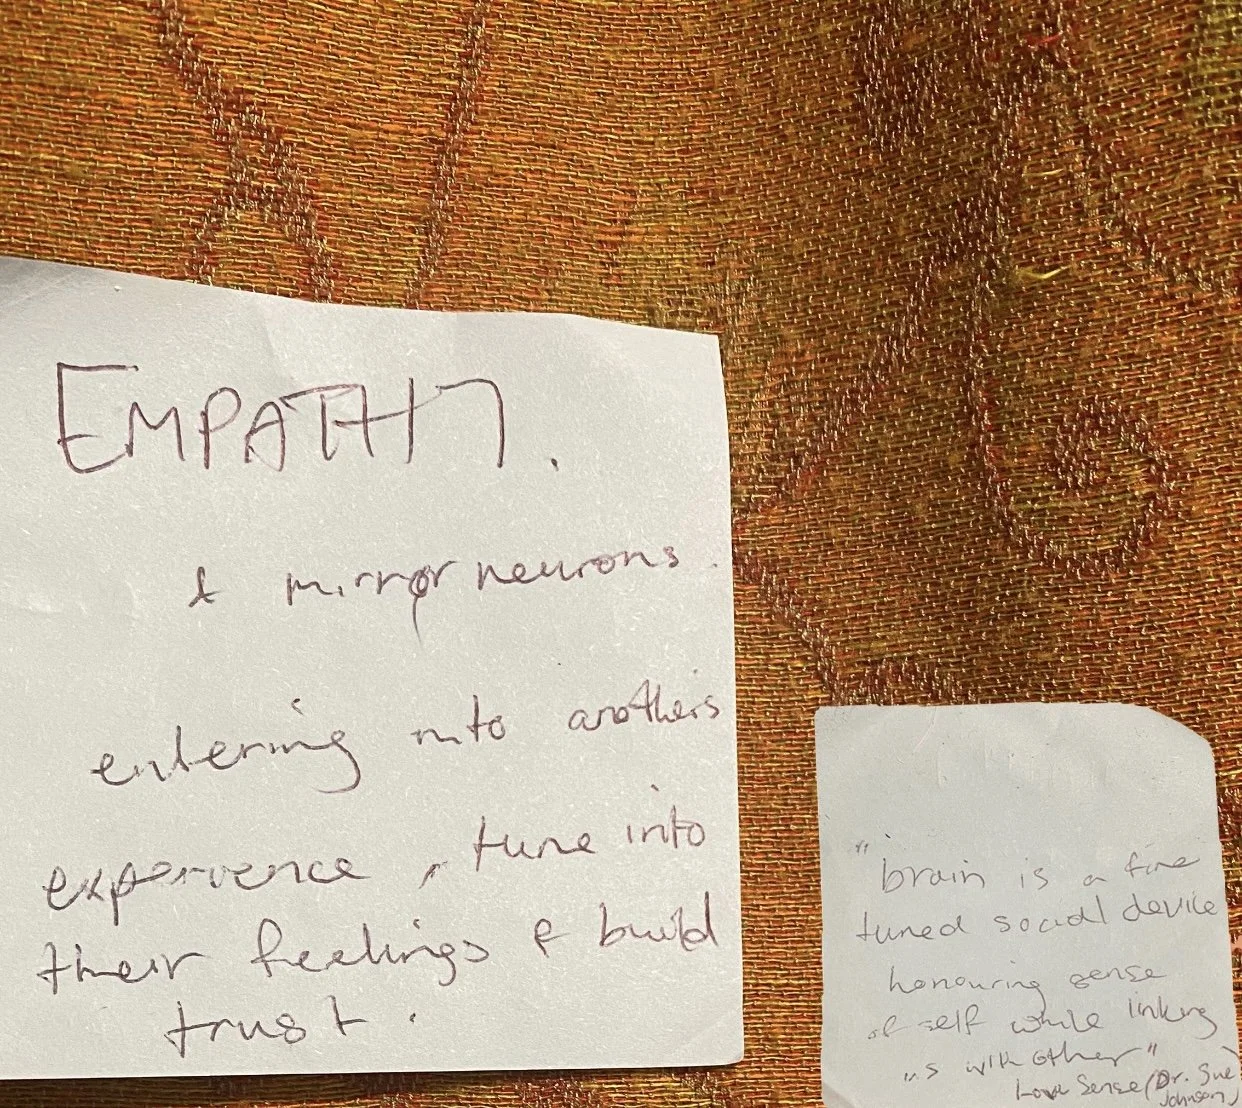 EMPATHY.
& mirror neurons.
entering into anothers
experience, tune into
their feelings & build
trust.
"brain is a fine
tuned social device
honouring sense
of self while linking
us with other"
Love Sense (Dr. Sue
Johnson)